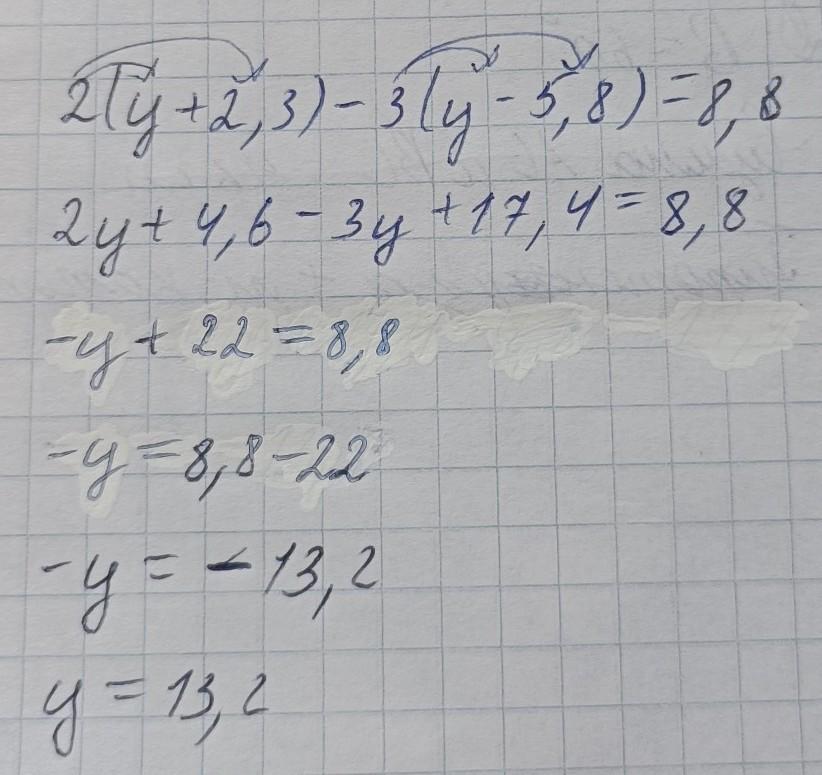 2(y+2,3)-3(y-5,8)=8,8
2y+4,6-3y+17,4=8,8
-y+22=8,8
-y=8,8-22
-y=-13,2
y=13,2